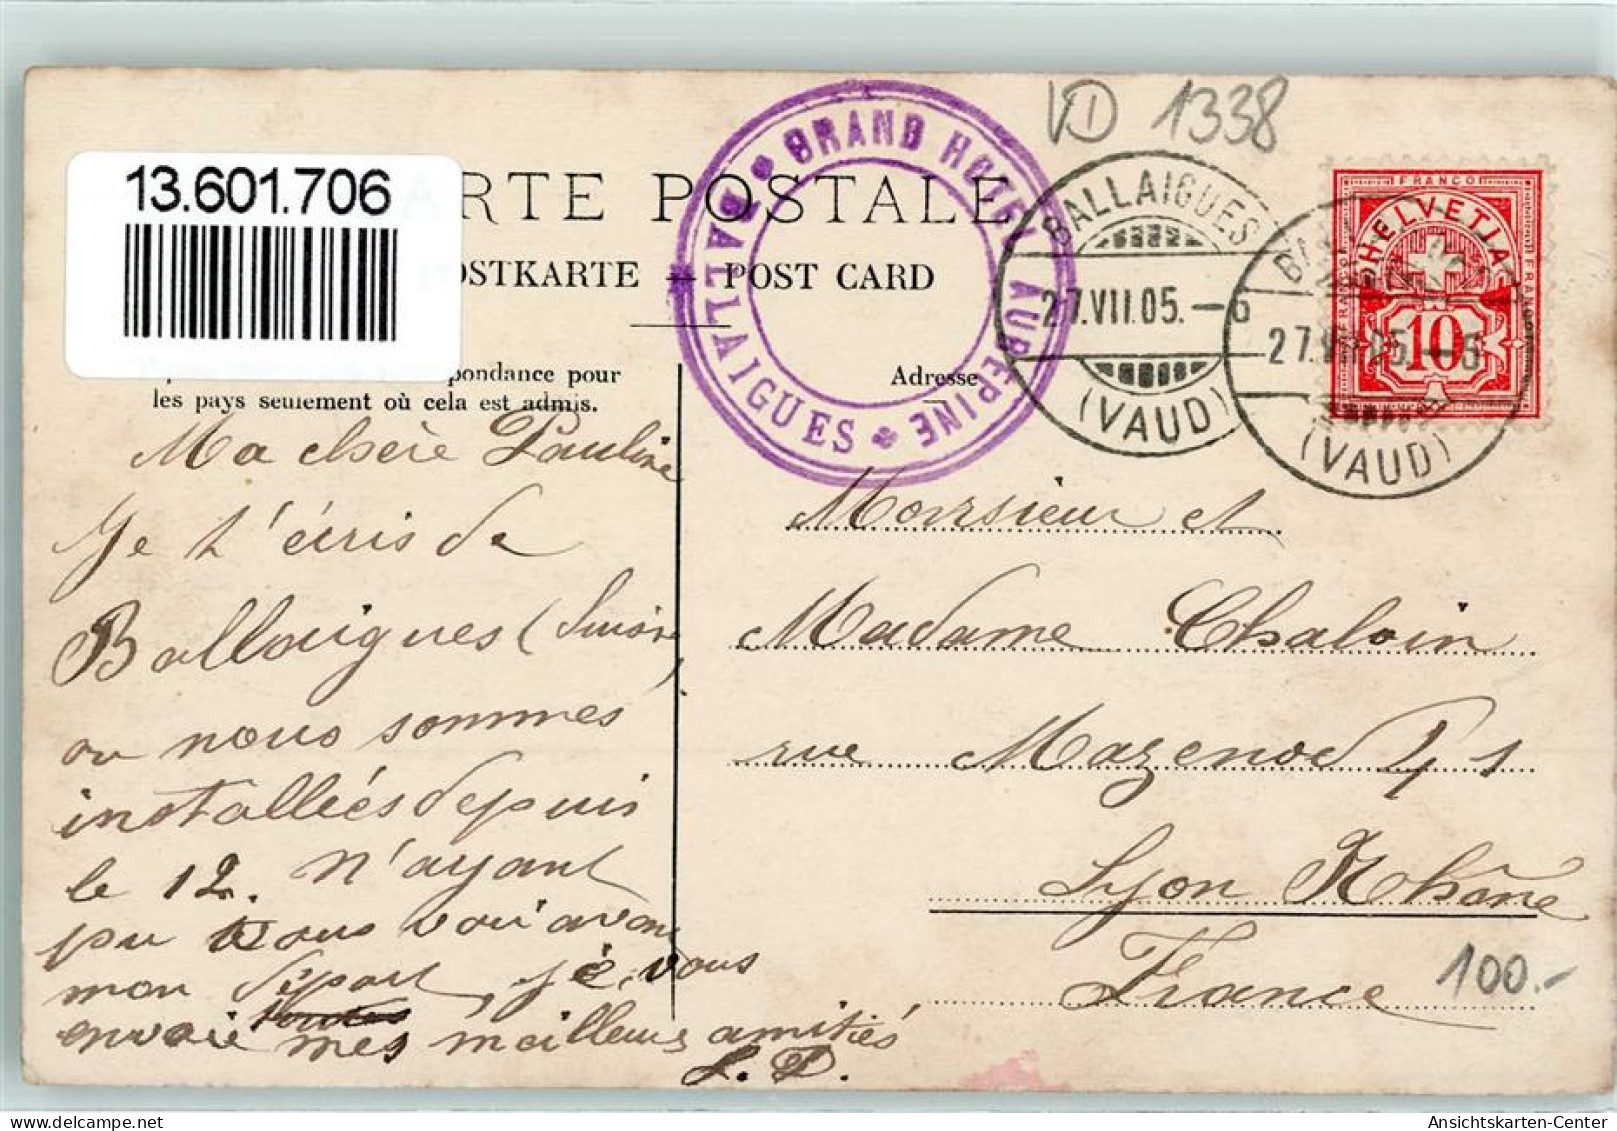 13.601.706
VD 1338
RTE POSTALE
OSTKARTE — POST CARD
GRAND HOTEL AUBEPINE
BALLAIGUES
BALLAIGUES
27.VII.05.–6
(VAUD)
27.VII.05.–6
(VAUD)
FRANCO
HELVETIA
10
pondance pour
les pays seulement où cela est admis.
Adresse
Ma chère Pauline
Je t'écris de
Ballaigues (Suisse)
ou nous sommes
installées depuis
le 12. n'ayant
pu vous voir avant
mon départ, je vous
envoie toutes mes meilleures amitiés
L. P.
Monsieur et
Madame Chaloin
rue Mazenod 41
Lyon Rhône
France
100.-
Ansichtskarten-Center